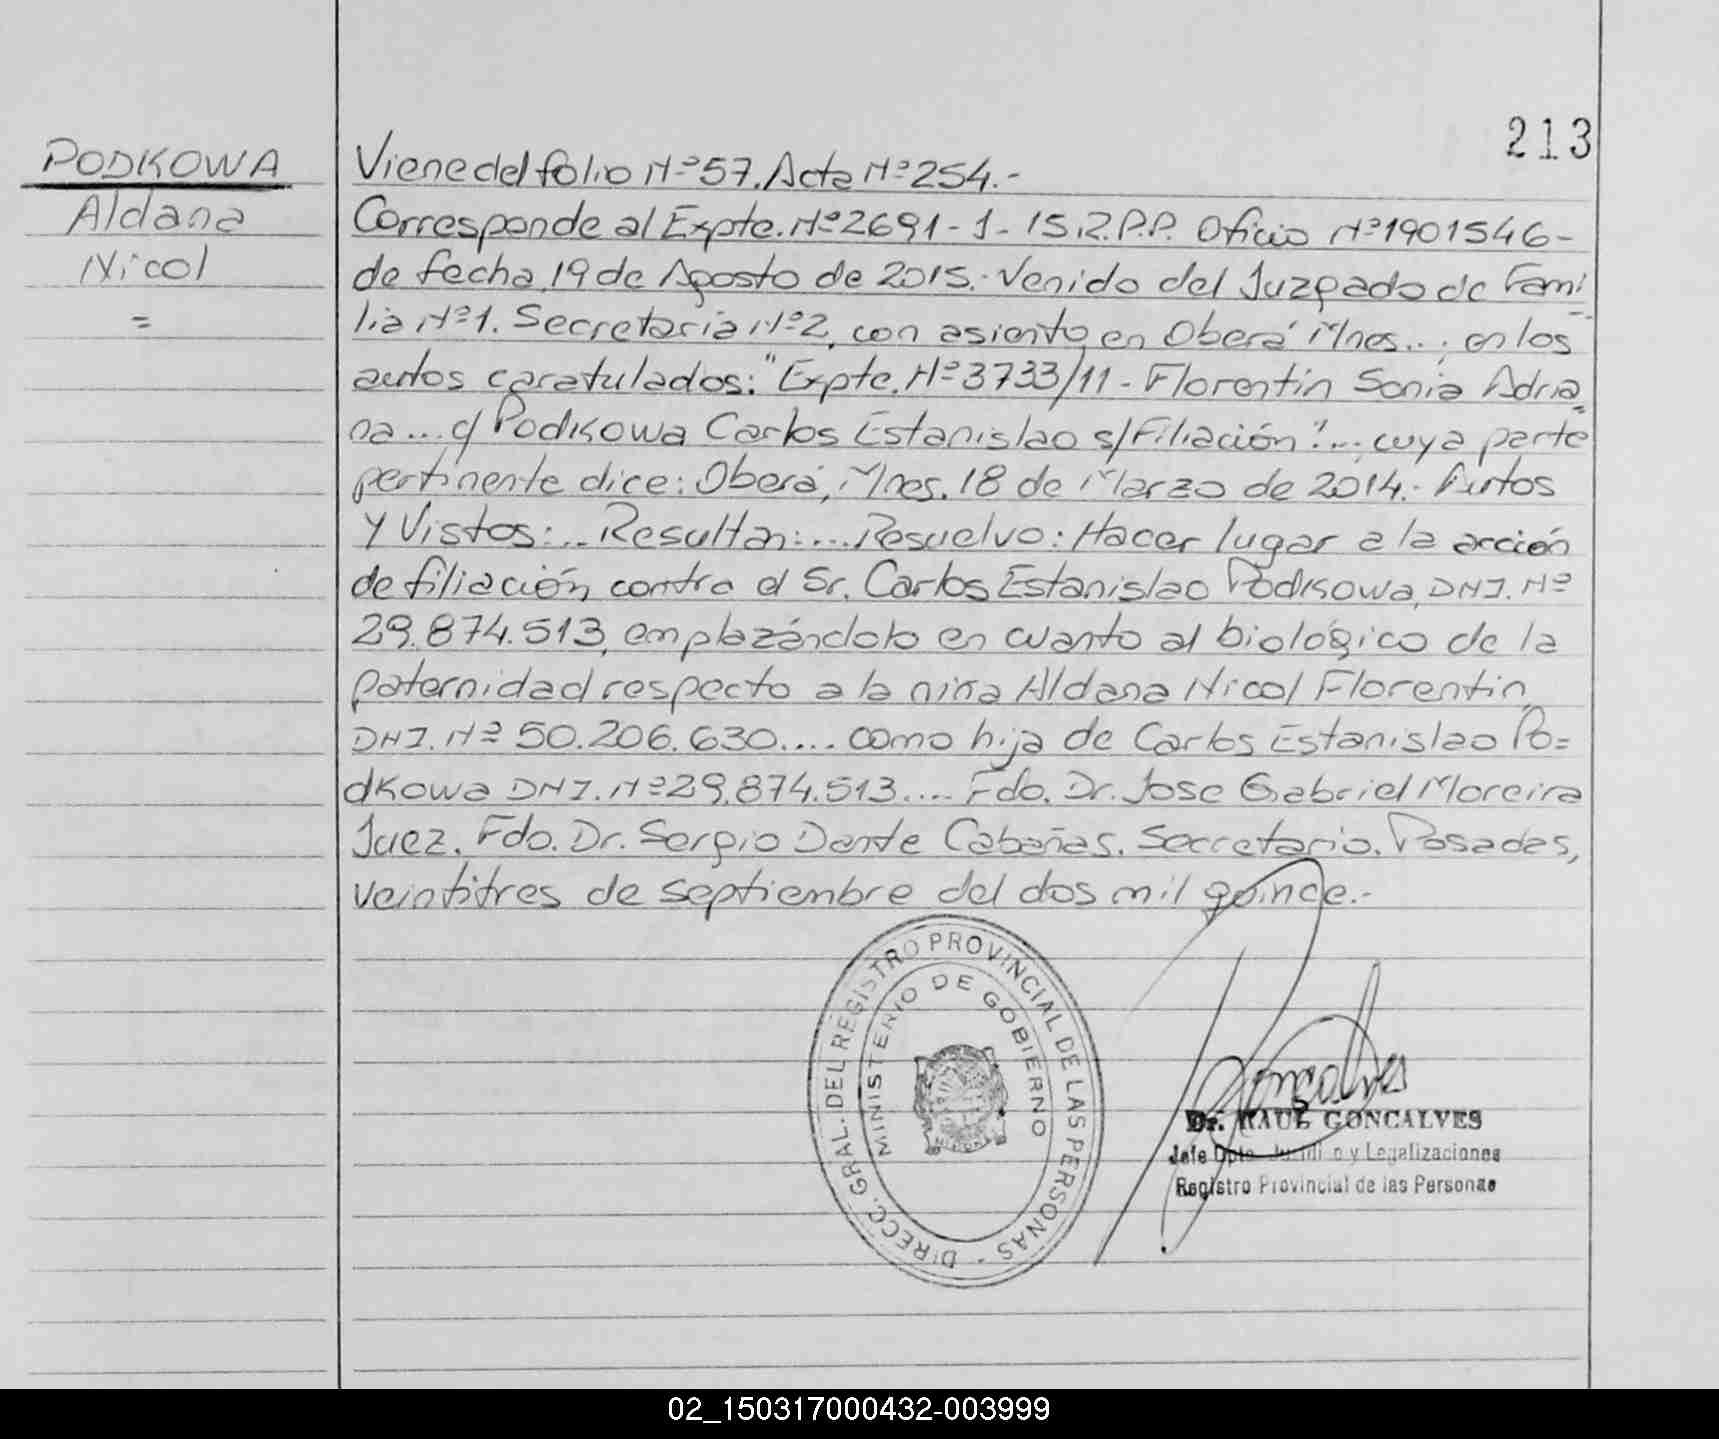 213
PODKOWA
Aldana
Nicol
=
Viene del folio Nº 57. Acta Nº 254.-
Corresponde al Expte. Nº 2691-1-15.R.P.P. Oficio Nº 1901546-
de fecha, 19 de Agosto de 2015.- Venido del Juzgado de Fami-
lia Nº 1. Secretaría Nº 2, con asiento en Oberá Mnes...; en los
autos caratulados: "Expte. Nº 3733/11 - Florentín Sonia Adria-
na... c/ Podkowa Carlos Estanislao s/Filiación"... cuya parte
pertinente dice: Oberá, Mnes. 18 de Marzo de 2014.- Autos
Y Vistos:... Resultan:... Resuelvo: Hacer lugar a la acción
de filiación contra el Sr. Carlos Estanislao Podkowa, DNI. Nº
29.874.513, emplazándolo en cuanto al biológico de la
paternidad respecto a la niña Aldana Nicol Florentín,
DNI. Nº 50.206.630.... como hija de Carlos Estanislao Po=
dkowa DNI. Nº 29.874.513.... Fdo. Dr. Jose Gabriel Moreira
Juez. Fdo. Dr. Sergio Dante Cabañas. Secretario. Posadas,
veintitres de septiembre del dos mil quince.-
DIRECC. GRAL. DEL REGISTRO PROVINCIAL DE LAS PERSONAS -
MINISTERIO DE GOBIERNO
Gonçalves
Dr. RAUL GONCALVES
Jefe Dpto. Jurídico y Legalizaciones
Registro Provincial de las Personas
02_150317000432-003999